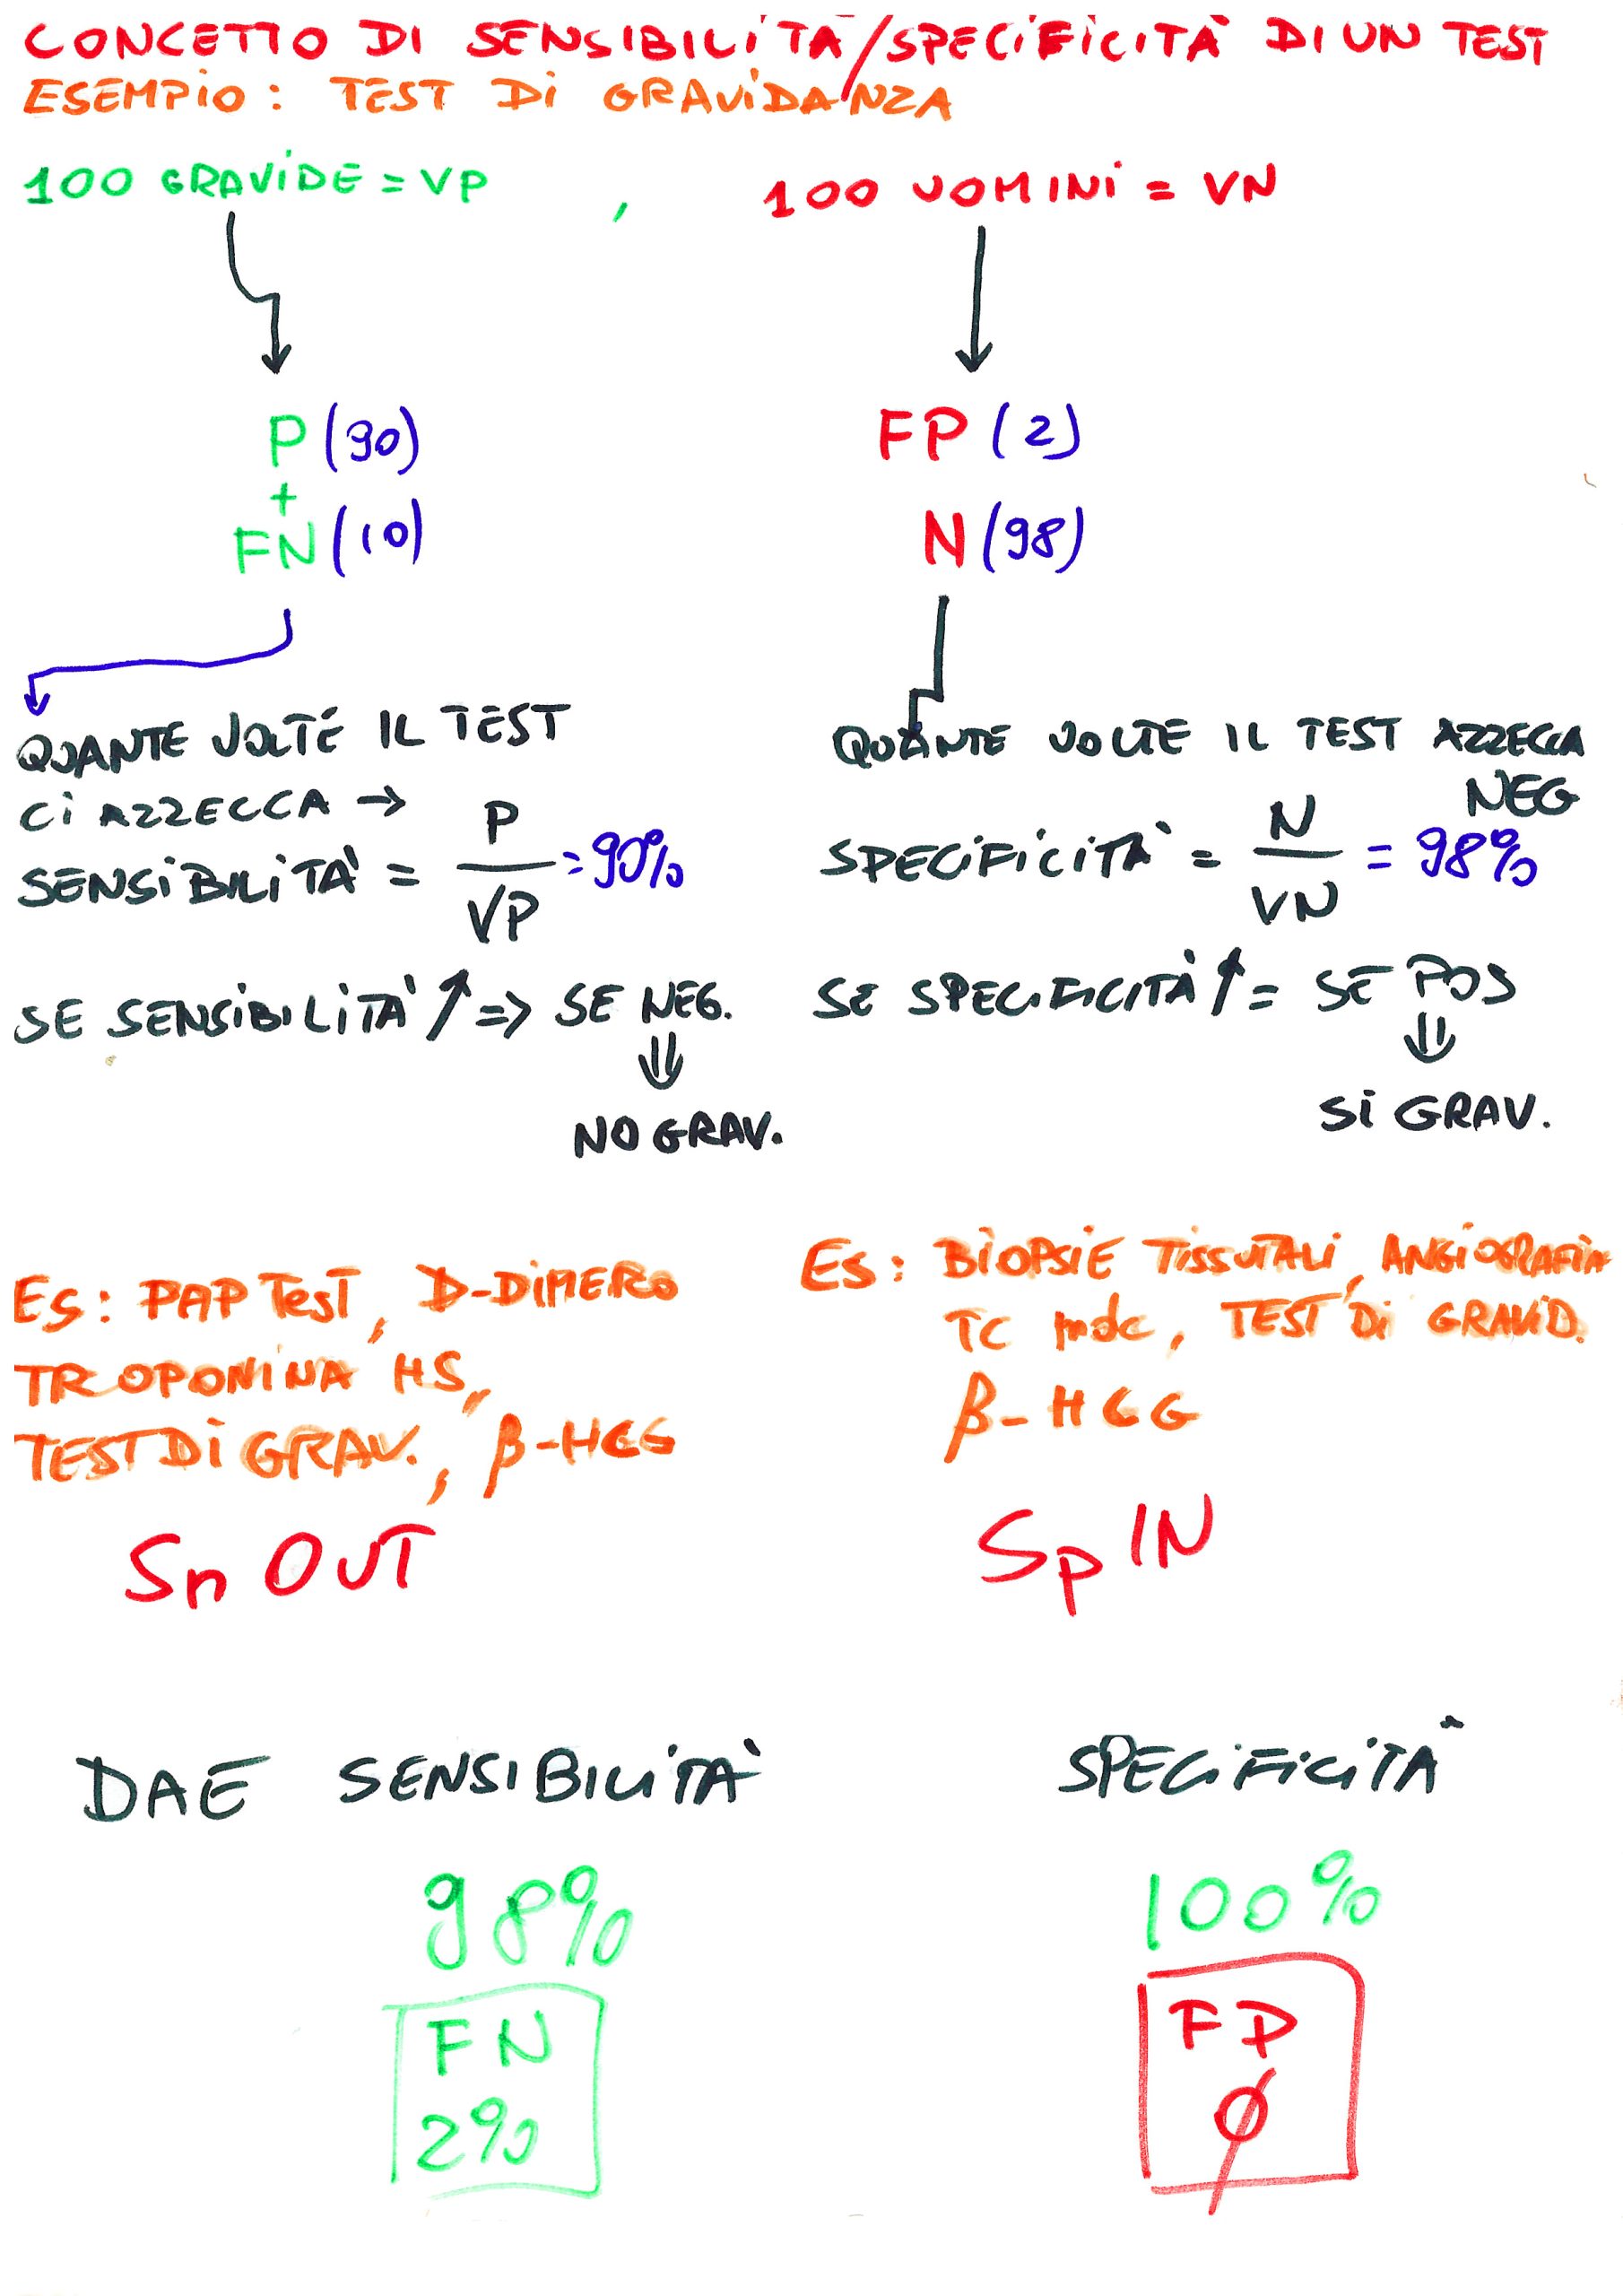 CONCETTO DI SENSIBILITÀ/SPECIFICITÀ DI UN TEST
ESEMPIO: TEST DI GRAVIDANZA
100 GRAVIDE = VP , 100 UOMINI = VN
P (90)
+
FN (10)
FP (2)
N (98)
QUANTE VOLTE IL TEST
CI AZZECCA →
SENSIBILITÀ = P/VP = 90%
SE SENSIBILITÀ ↑ => SE NEG.
⇓
NO GRAV.
QUANTE VOLTE IL TEST AZZECCA
NEG
SPECIFICITÀ = N/VN = 98%
SE SPECIFICITÀ ↑ = SE POS
⇓
SI GRAV.
ES: PAP TEST, D-DIMERO
TROPONINA HS,
TEST DI GRAV., β-HCG
Sn OUT
ES: BIOPSIE TISSUTALI, ANGIOGRAFIA
TC mdc, TEST DI GRAVID.
β-HCG
Sp IN
DAE SENSIBILITÀ SPECIFICITÀ
98% 100%
FN
2%
FP
0